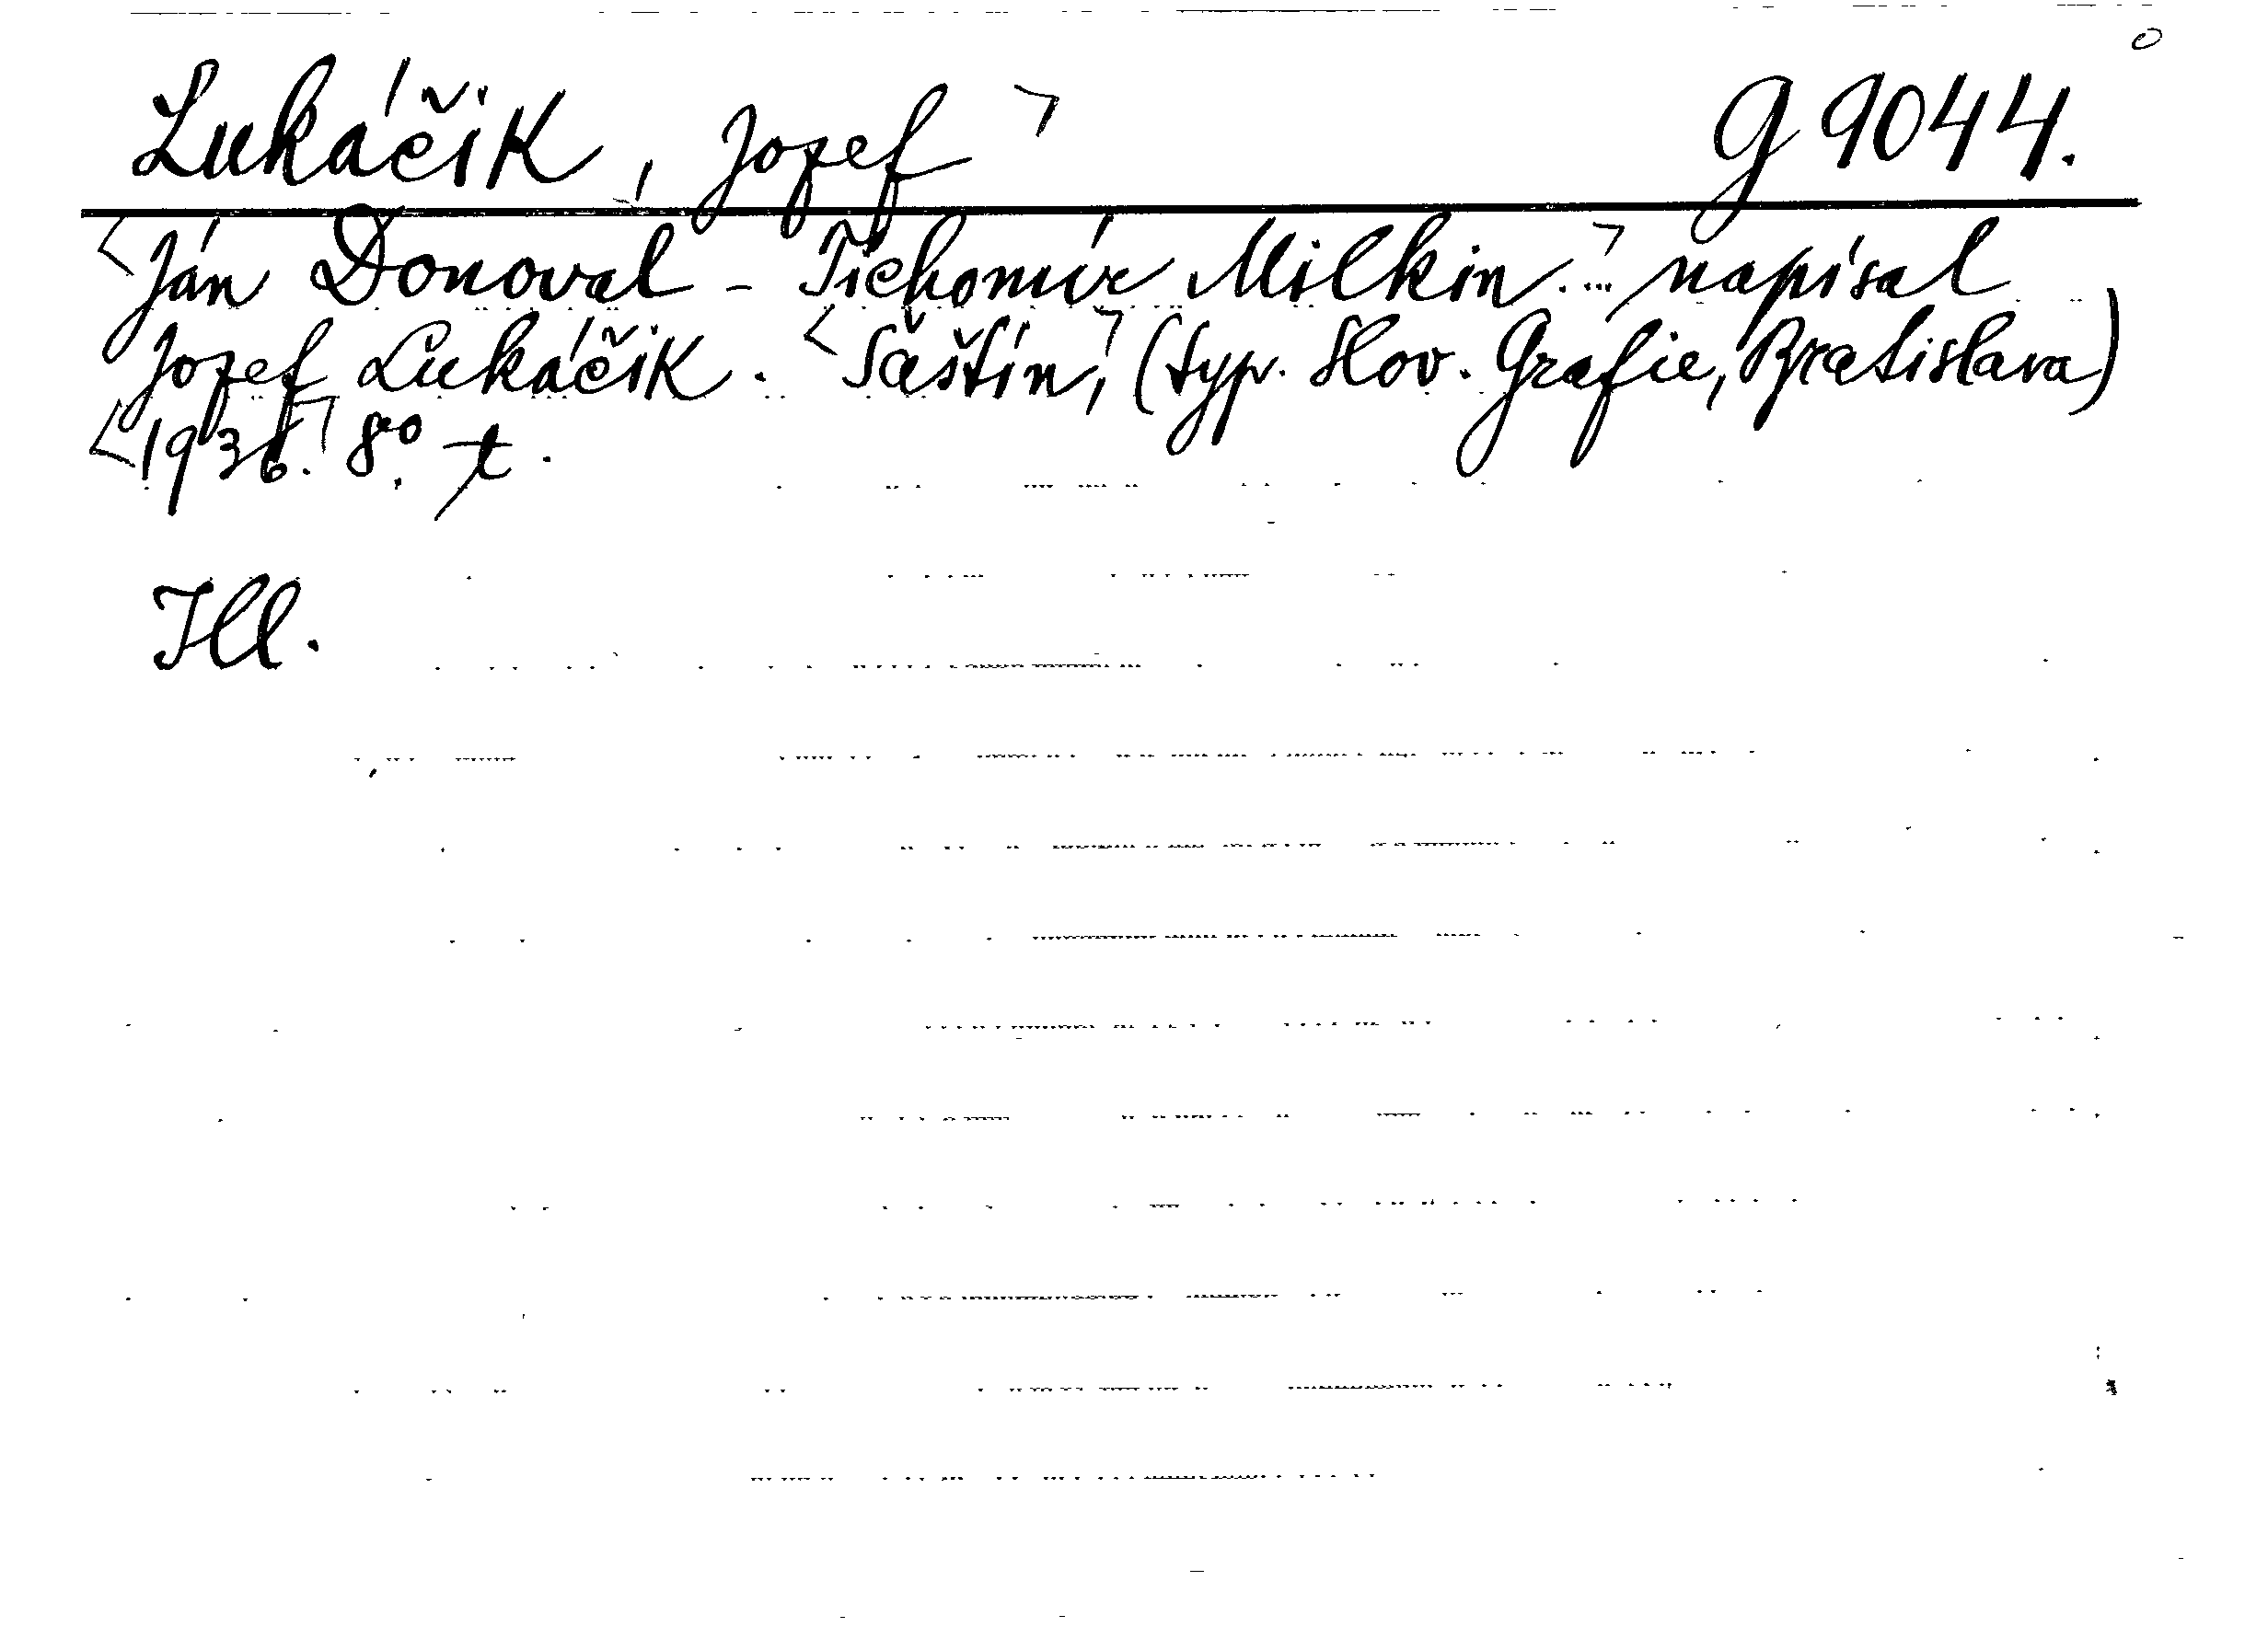 Lukáčik, Jozef ㄱ G 9044.
<Ján Donoval - Tichomír Milkinㄱ... napísal
Jozef Lukáčik. <Šaštínㄱ, (typ. Slov. Grafie, Bratislava)
<1936.ㄱ 8°. t.
Ill.